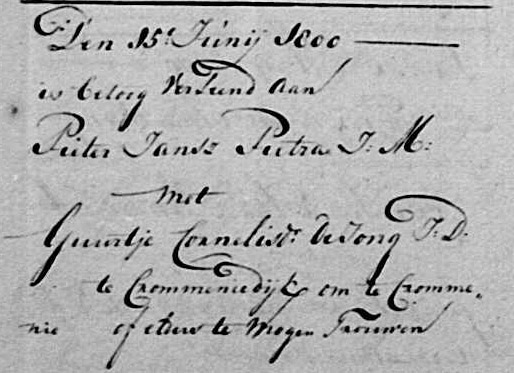 Den 15 Junij 1800
is beleeg Verleend Aan
Pieter Jansz Pietra J: M:
Met
Guurtje Cornelisdr. de Jong J: D:
te Crommeniedijk om te Cromme,
nie of elders te Mogen Trouwen